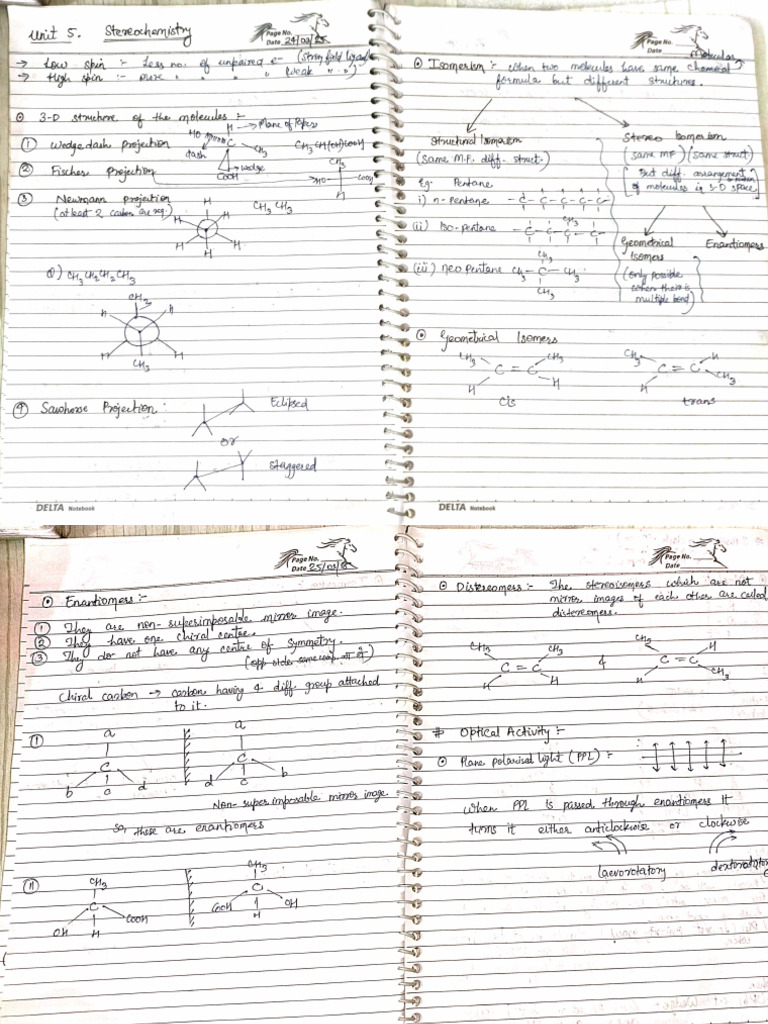 Unit 5. Stereochemistry
Page No.
Date 24/03/25
→ Low spin :- Less no. of unpaired e- (strong field ligand)
→ High spin :- more " " " (weak " " )
⊙ 3-D structure of the molecules :-
① Wedge dash projection
H → Plane of Paper
HO C CH3
dash wedge
COOH
CH3CH(OH)COOH
② Fischer projection
CH3
HO COOH
H
③ Newmann projection
(at least 2 carbon are req.)
CH3 CH3
H
H H
H H
H
Q) CH3CH2CH2CH3
CH3
H H
H H
CH3
④ Sawhorse Projection
Eclipsed
or
Staggered
DELTA Notebook
Page No.
Date
⊙ Isomerism :- When two molecules have same chemical
molecular
formula but different structures.
Structural Isomerism
(same M.F. diff. struct.)
Eg: Pentane
i) n-Pentane -C-C-C-C-C-
(ii) Iso-pentane -C-C-C-C-
CH3
(iii) neo Pentane CH3-C-CH3
CH3
CH3
Stereo Isomerism
(same MF) (same struct)
[But diff. arrangement
of molecules in 3-D space]
Geometrical
Isomers
(only possible
when there is
multiple bond)
Enantiomers
⊙ Geometrical Isomers
CH3 CH3
C = C
H H
cis
CH3 H
C = C
H CH3
trans
DELTA Notebook
Page No.
Date 25/03/25
⊙ Enantiomers :-
① They are non-superimposable mirror image.
② They have one chiral centre.
③ They do not have any centre of symmetry.
Chiral carbon → carbon having 4 diff. group attached
to it.
①
a a
C C
b c d d c b
Non-super imposable mirror image
So, these are enantiomers
②
CH3 CH3
C C
OH H COOH COOH H OH
Page No.
Date
⊙ Distereomers :- The stereoisomers which are not
mirror images of each other are called
distereomers.
CH3 CH3
C = C
H H
&
CH3 H
C = C
H CH3
# Optical Activity :-
⊙ Plane polarised light (PPL) :-
When PPL is passed through enantiomers it
turns it either anticlockwise or clockwise
laevorotatory